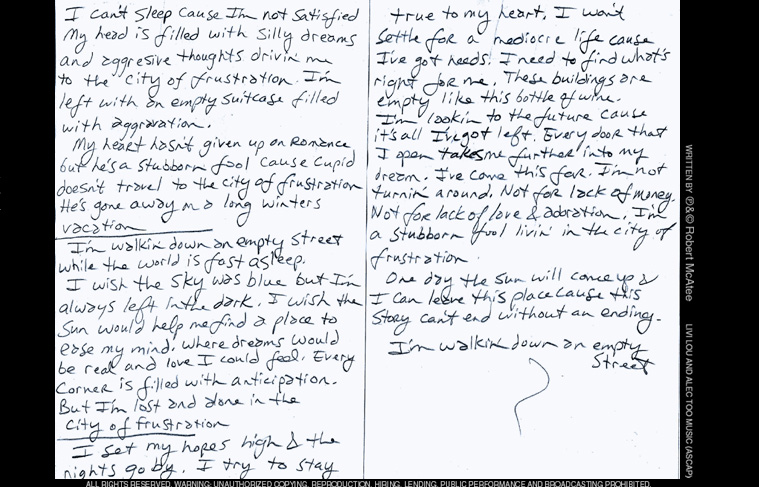 I can't sleep cause I'm not satisfied
My head is filled with silly dreams
and aggresive thoughts drivin' me
to the city of frustration. I'm
left with an empty suitcase filled
with aggravation.
My heart hasn't given up on Romance
but he's a stubborn fool cause cupid
doesn't travel to the city of frustration
He's gone away on a long winters
vacation
I'm walkin down an empty street
while the world is fast asleep.
I wish the sky was blue but I'm
always left in the dark. I wish the
sun would help me find a place to
ease my mind. Where dreams would
be real and love I could feel. Every
corner is filled with anticipation.
But I'm lost and alone in the
city of frustration
I set my hopes high & the
nights go by. I try to stay
true to my heart. I won't
settle for a mediocre life cause
I've got needs. I need to find what's
right for me. These buildings are
empty like this bottle of wine.
I'm lookin to the future cause
it's all I've got left. Every door that
I open takes me further into my
dream. I've come this far. I'm not
turnin' around. Not for lack of money.
Not for lack of love & adoration. I'm
a stubborn fool livin' in the city of
frustration.
One day the sun will come up &
I can leave this place cause this
story can't end without an ending.
I'm walkin down an empty
street
WRITTEN BY ℗&© Robert McAtee
LIVI LOU AND ALEC TOO MUSIC (ASCAP)
ALL RIGHTS RESERVED. WARNING: UNAUTHORIZED COPYING, REPRODUCTION, HIRING, LENDING, PUBLIC PERFORMANCE AND BROADCASTING PROHIBITED.